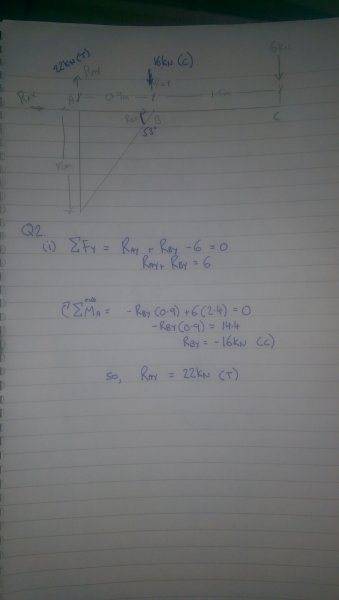 22kN (T) 16kN (C) 6kN
RAY RBY
A 0.9m 1.5m
B C
53°
Q2
(i) ΣFY = RAY + RBY - 6 = 0
RAY + RBY = 6
ΣMA = -RBY (0.9) + 6(2.4) = 0
-RBY (0.9) = 14.4
RBY = -16kN (C)
so, RAY = 22kN (T)